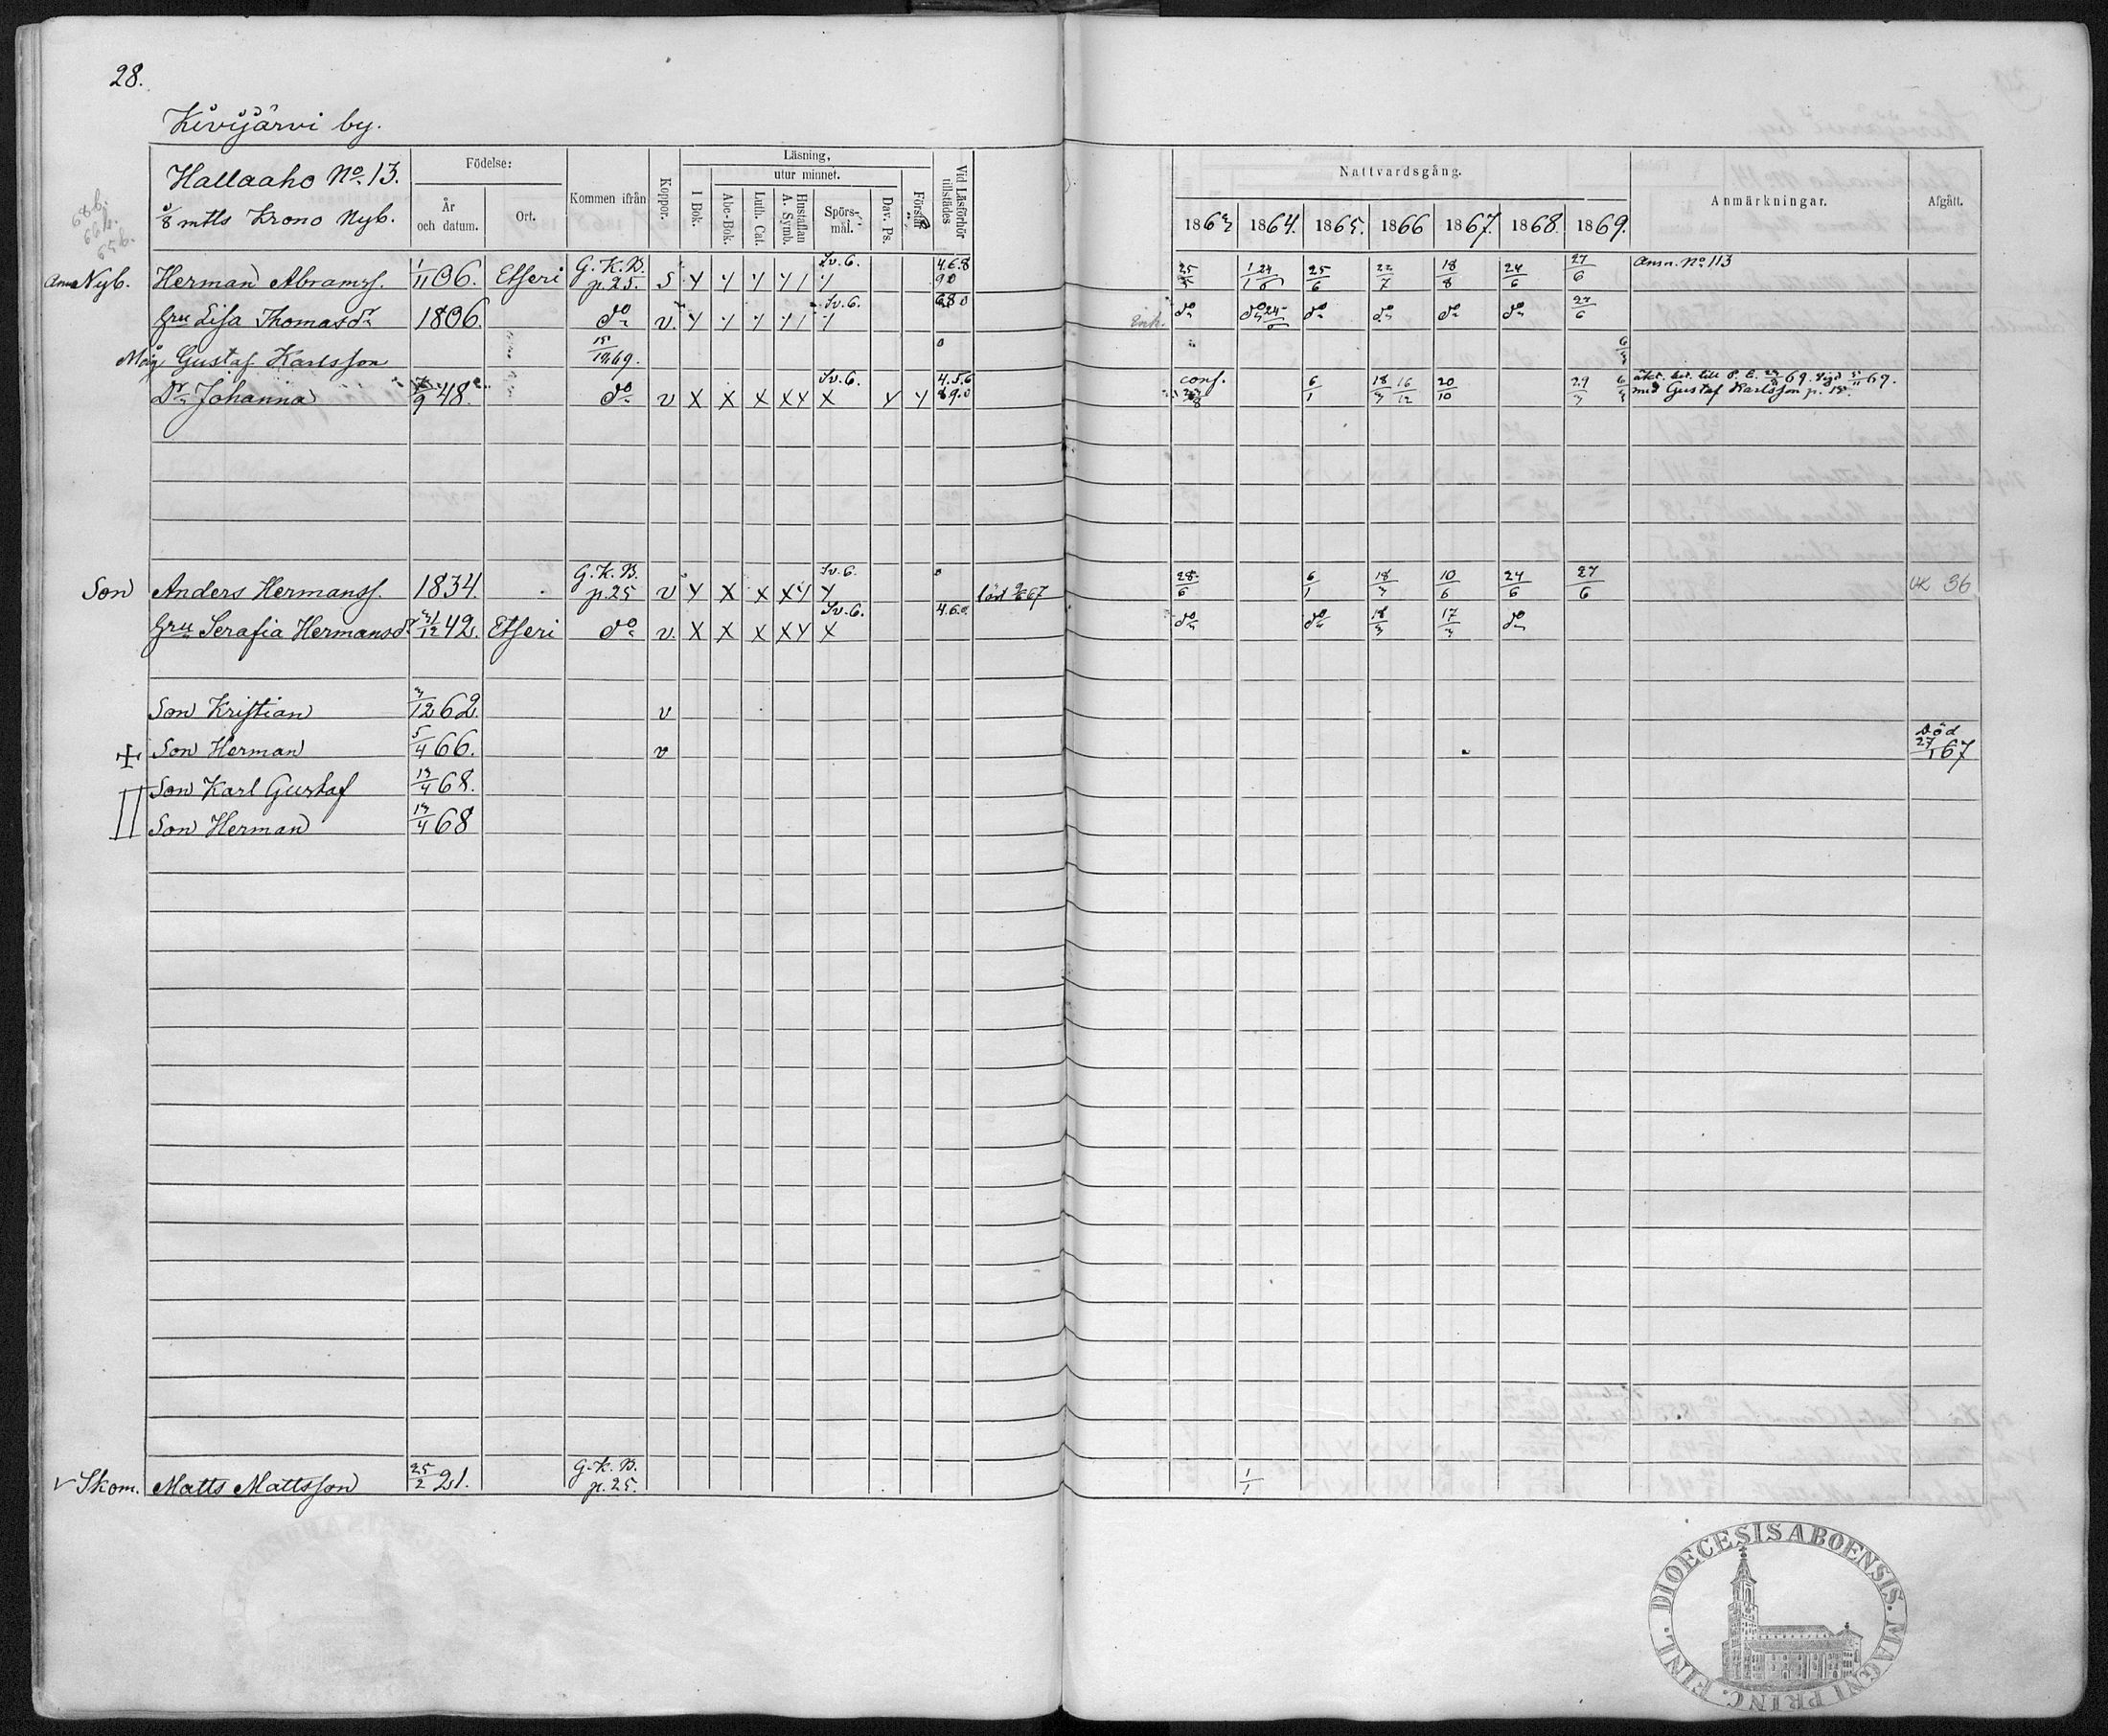 28.
Kivijärvi by.
Hallaaho No. 13.
3/8 mtls Krono Nyb.
Födelse:
År och datum.
Ort.
Kommen ifrån
Koppor.
Läsning,
I Bok.
utur minnet.
Abc-Bok.
Luth. Cat.
Hustaflan A. Symb.
Spörsmål.
Dav. Ps.
Förstår
Vid Läsförhör tillstädes
Nattvardsgång.
1863 1864. 1865. 1866 1867. 1868. 1869.
Anmärkningar.
Afgått.
Nyb. Herman Abramss. 1/11 06. Etseri G. K. B. p. 25. S Y Y Y Y 1 Y Sv. 6. 4.6.8 90 25/6 22/7 18/8 24/6 27/6 Ansn. No 113
Hru Lisa Thomasdr 1806. do v. Y Y Y Y 1 Y Sv. 6. 680 Enk. do do 24/6 do do do do 27/6
Måg Gustaf Karlsson 15/11 69. 0 6/3
Dr Johanna 7/9 48. do v X X X X Y X Sv. 6. Y Y 4.5.6 89.0 conf. 6/1 18/3 16/12 20/10 29/3 6/3 med Gustaf Karlsson p. 15.
Son Anders Hermanss. 1834. G. K. B. p. 25 v Y X X X Y Y Sv. 6. 0 67 28/6 6/1 18/3 10/6 24/6 27/6 UK 36
Hru Serafia Hermansdr 31/12 42. Etseri do v. X X X X Y X Sv. 6. 4.6.0. do do 18/3 17/3 do
Son Kristian 3/12 62. v
+ Son Herman 5/4 66. v Död 27/1 67
Son Karl Gustaf 13/4 68.
Son Herman 13/4 68
v Skom. Matts Mattsson 25/2 21. G. K. B. p. 25. 1/1
DIOECESIS ABOENSIS. MAGNI PRINC. FINL.